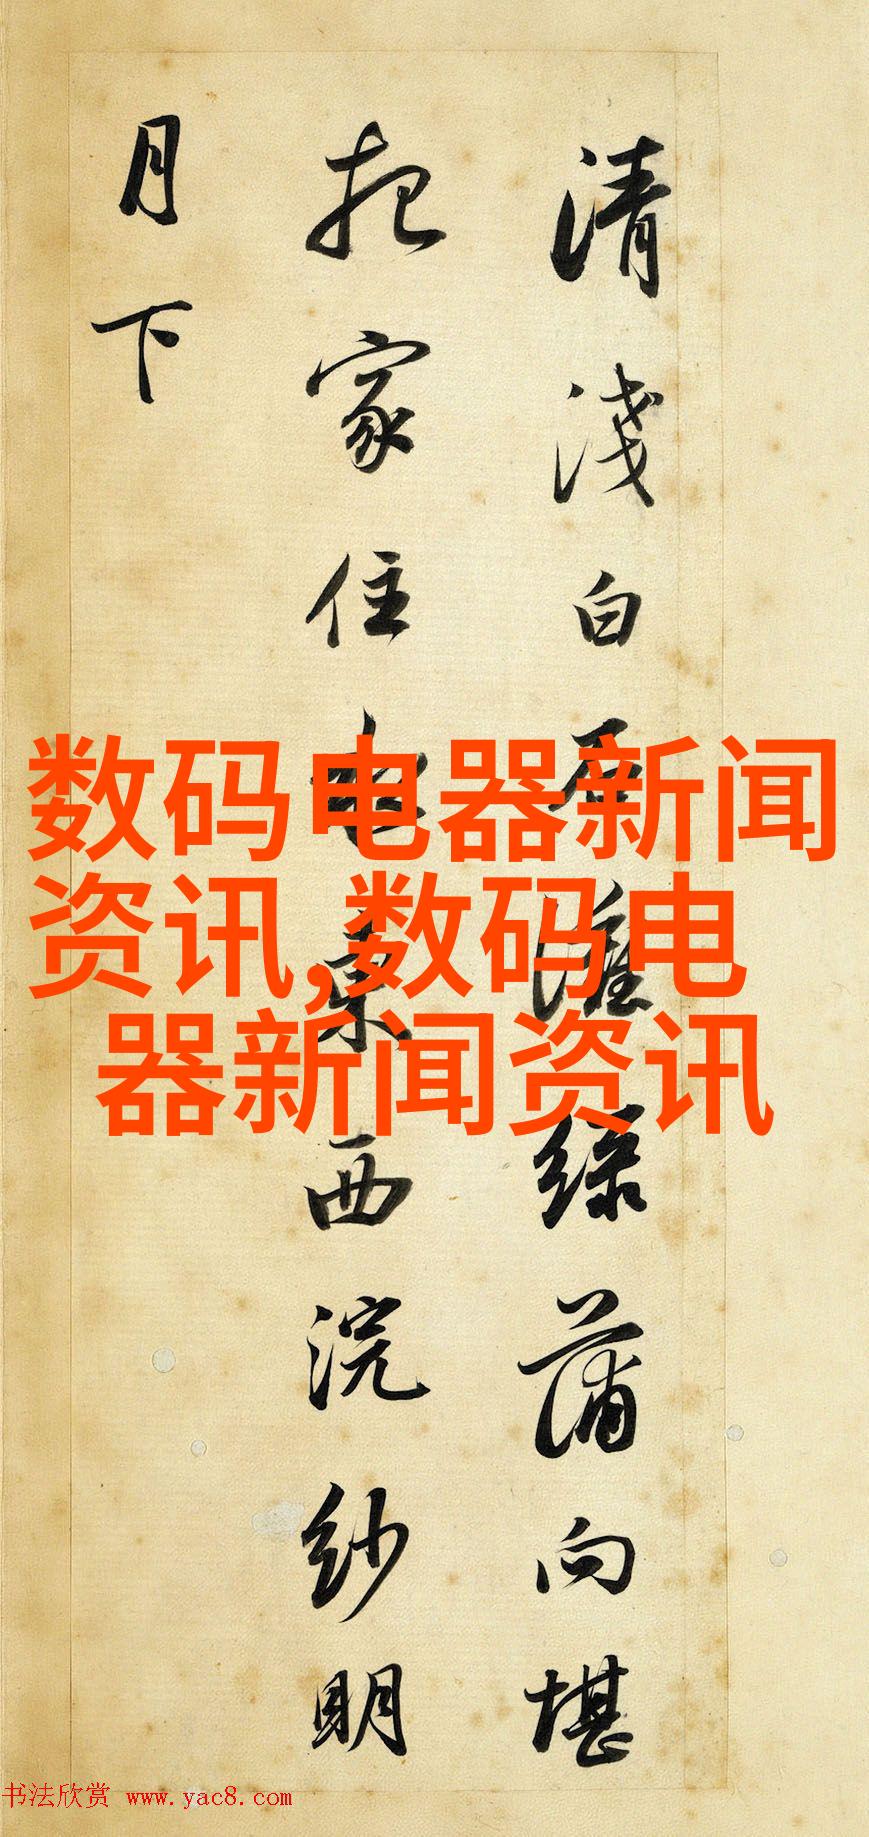 清淺白石灘綠蒲向堪
把家住水東西浣紗明
月下
数码电器新闻
资讯,数码电
器新闻资讯
书法欣赏 www.yac8.com